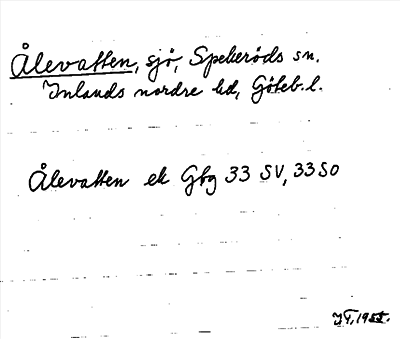 Ålevatten, sjö, Spekeröds sn.
Inlands nordre hd, Göteb. l.
Ålevatten ek Gbg 33 SV, 33 SO